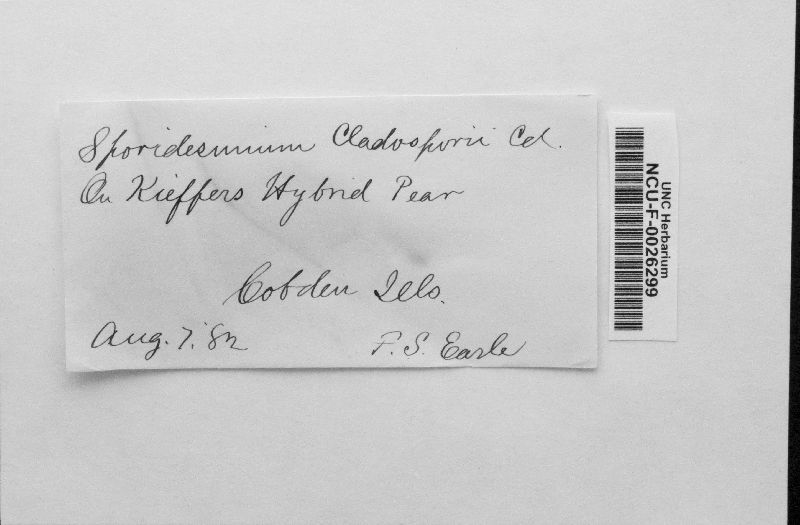 Sporidesmium Cladosporii Cd.
On Kieffers Hybrid Pear
Cobden Ills.
Aug. 7. '82
F. S. Earle
UNC Herbarium
NCU-F-0026299